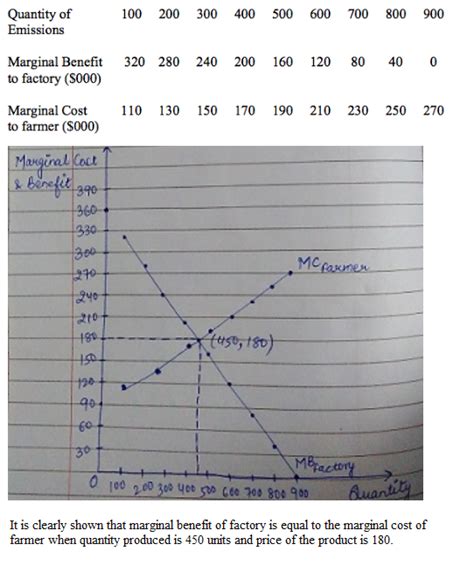 Quantity of 100 200 300 400 500 600 700 800 900
Emissions
Marginal Benefit 320 280 240 200 160 120 80 40 0
to factory ($000)
Marginal Cost 110 130 150 170 190 210 230 250 270
to farmer ($000)
Marginal Cost
& Benefit
390
360
330
300
270
MC Farmer
240
210
180
(450, 180)
150
120
90
60
30
MB Factory
0 100 200 300 400 500 600 700 800 900 Quantity
It is clearly shown that marginal benefit of factory is equal to the marginal cost of
farmer when quantity produced is 450 units and price of the product is 180.